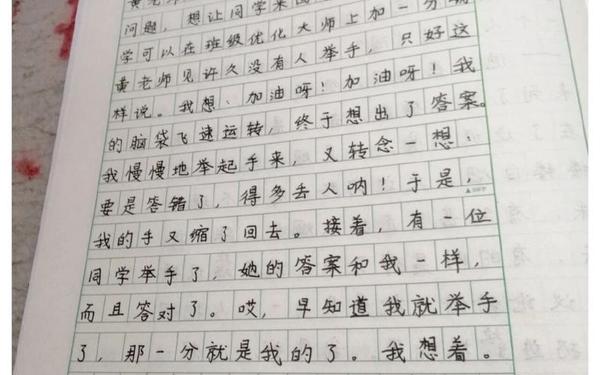 问题，想让同学来回
学可以在班级优化大师上加一分哟
黄老师见许久没有人举手，只好这
样说。我想：加油呀！加油呀！我
的脑袋飞速运转，终于想出了答案。
我慢慢地举起手来，又转念一想：
要是答错了，得多丢人呐！于是，
我的手又缩了回去。接着，有一位
同学举手了，她的答案和我一样，
而且答对了。哎，早知道我就举手
了，那一分就是我的了。我想着。